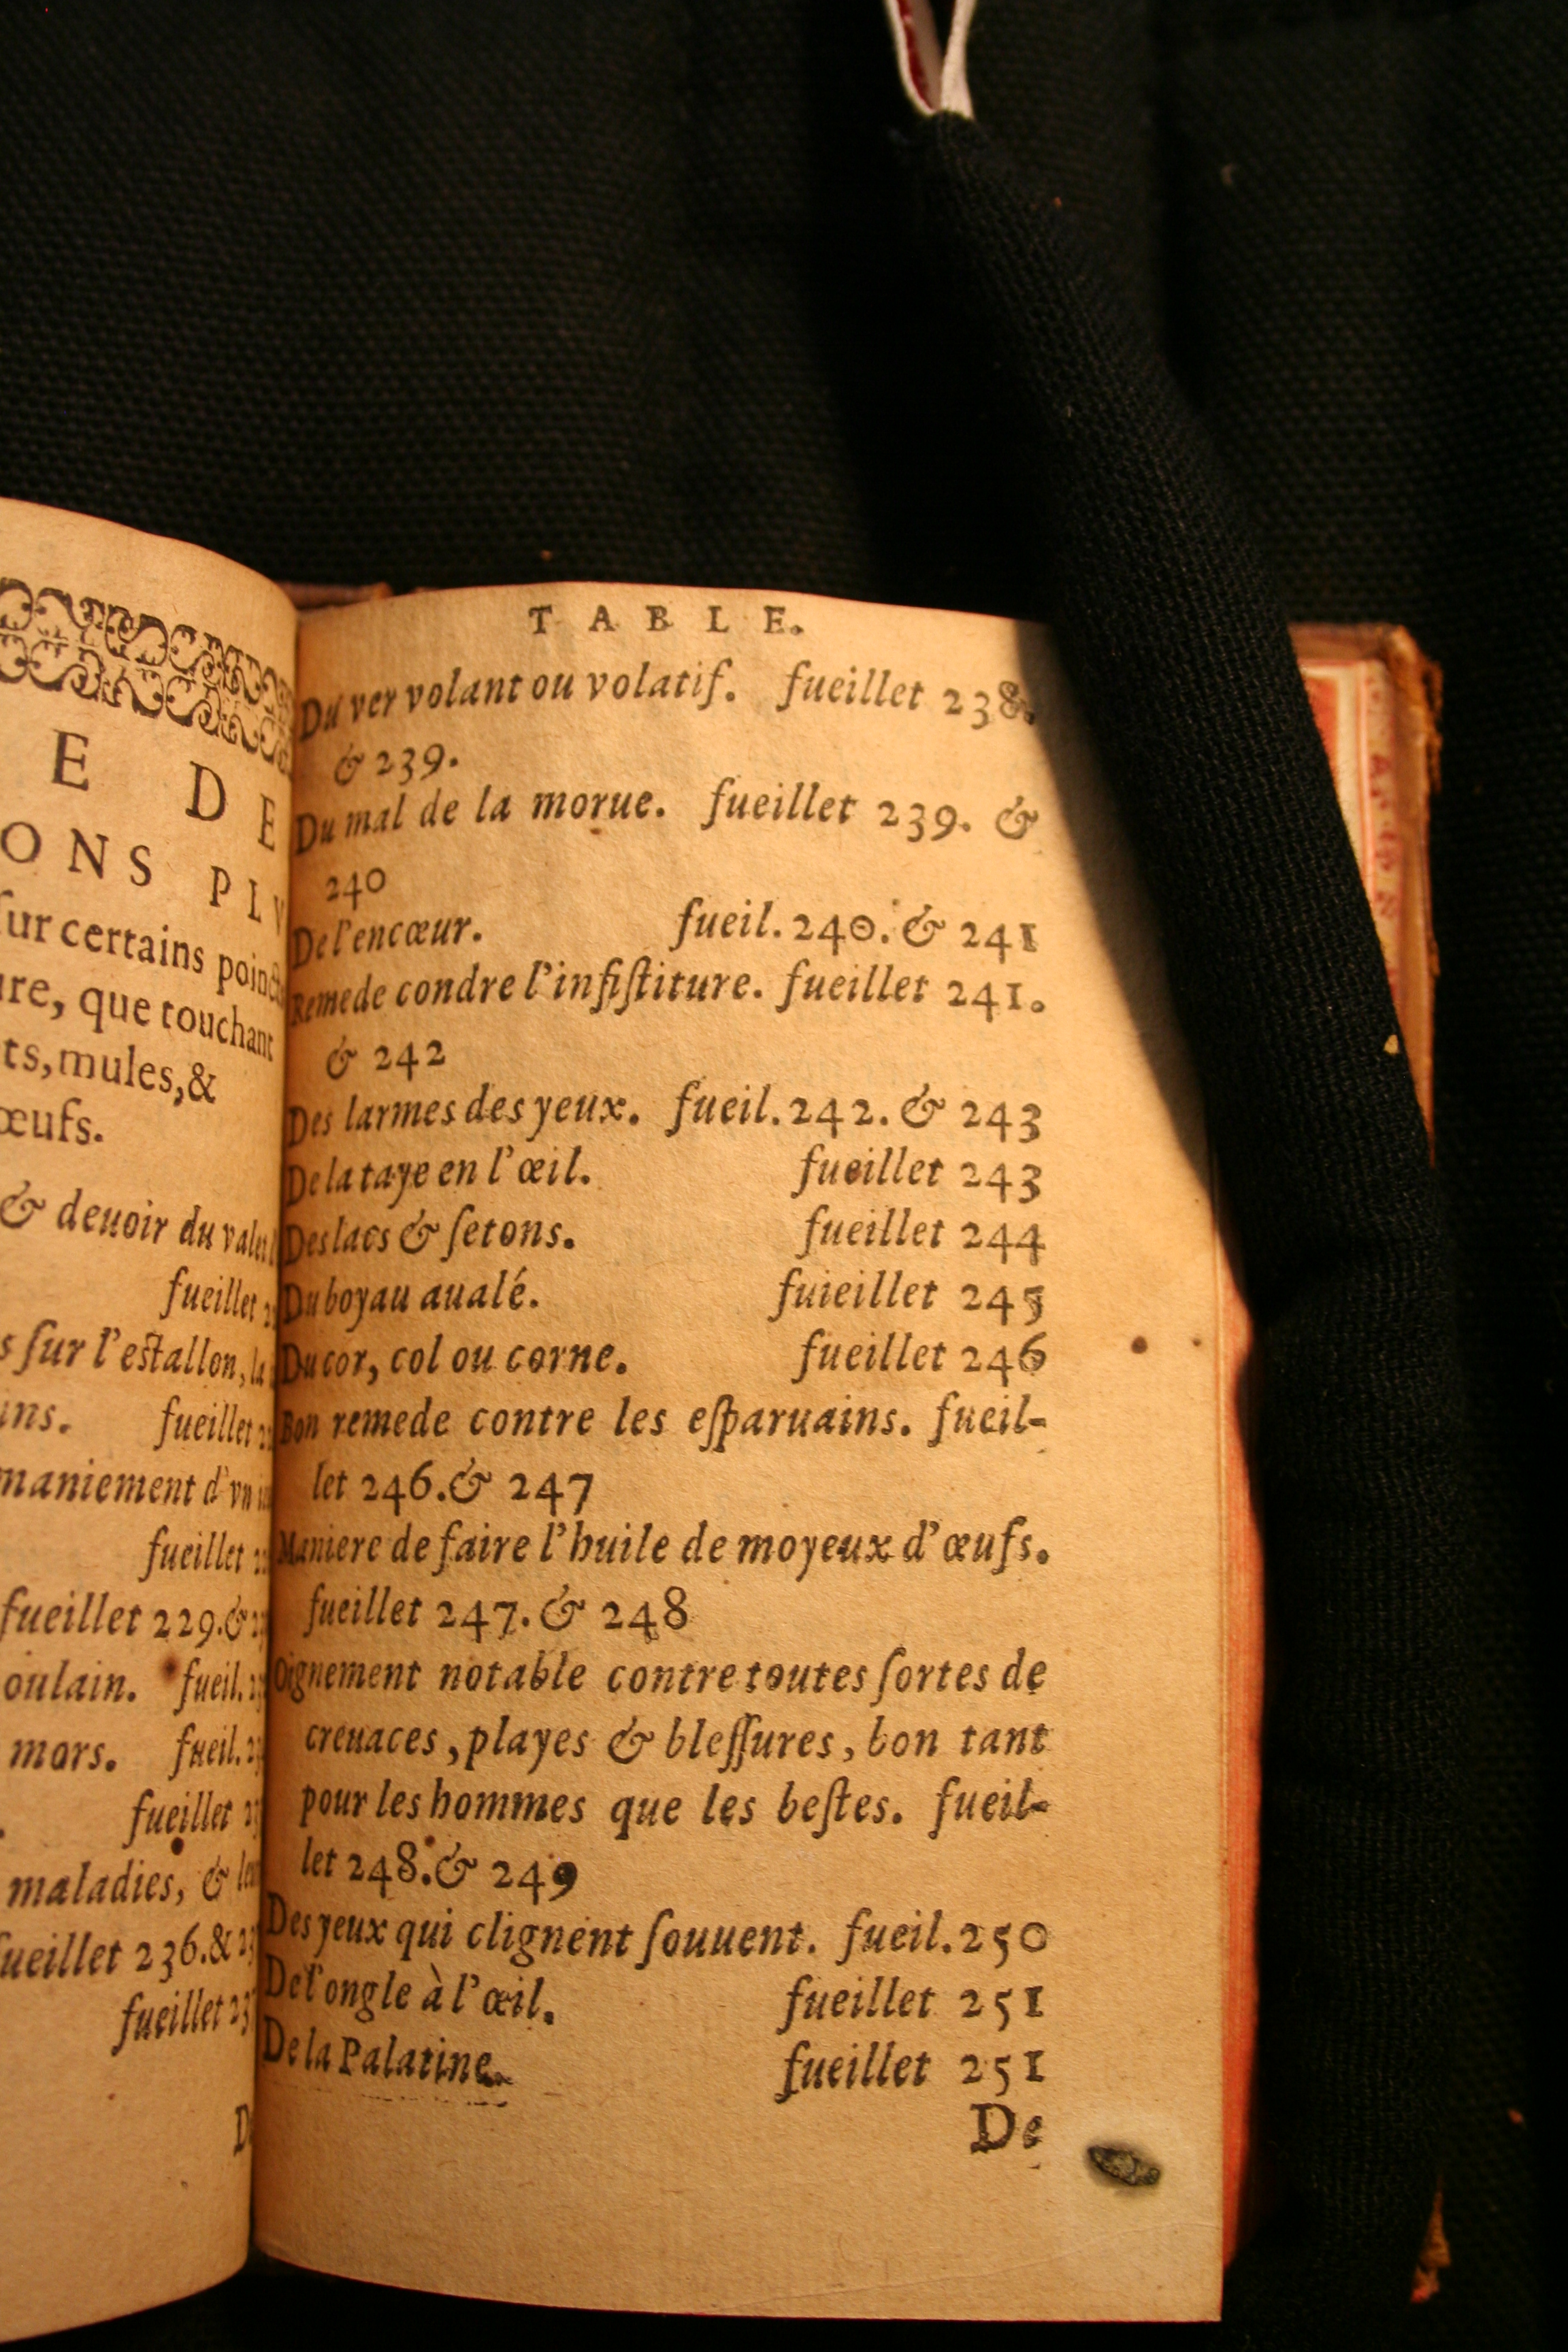 E DE
ONS PLV
ſur certains poinct
ure, que touchant
ts, mules, &
œufs.
& deuoir du valet
fueillet
s ſur l'eſtallon, la
ins. fueillet
maniement d'vn
fueillet
fueillet 229. &
oulain. fueil.
mors. fueil.
fueillet
maladies, &
fueillet 236. &
fueillet
TABLE.
Du ver volant ou volatif. fueillet 238.
& 239.
Du mal de la morue. fueillet 239. &
240
De l'encœur. fueil. 240. & 241
Remede condre l'infiſtiture. fueillet 241.
& 242
Des larmes des yeux. fueil. 242. & 243
De la taye en l'œil. fueillet 243
Des lacs & ſetons. fueillet 244
Du boyau aualé. fuieillet 245
Du cor, col ou corne. fueillet 246
Bon remede contre les eſparuains. fueil-
let 246. & 247
Maniere de faire l'huile de moyeux d'œufs.
fueillet 247. & 248
Oignement notable contre toutes ſortes de
creuaces, playes & bleſſures, bon tant
pour les hommes que les beſtes. fueil-
let 248. & 249
Des yeux qui clignent ſouuent. fueil. 250
De l'ongle à l'œil. fueillet 251
De la Palatine. fueillet 251
De